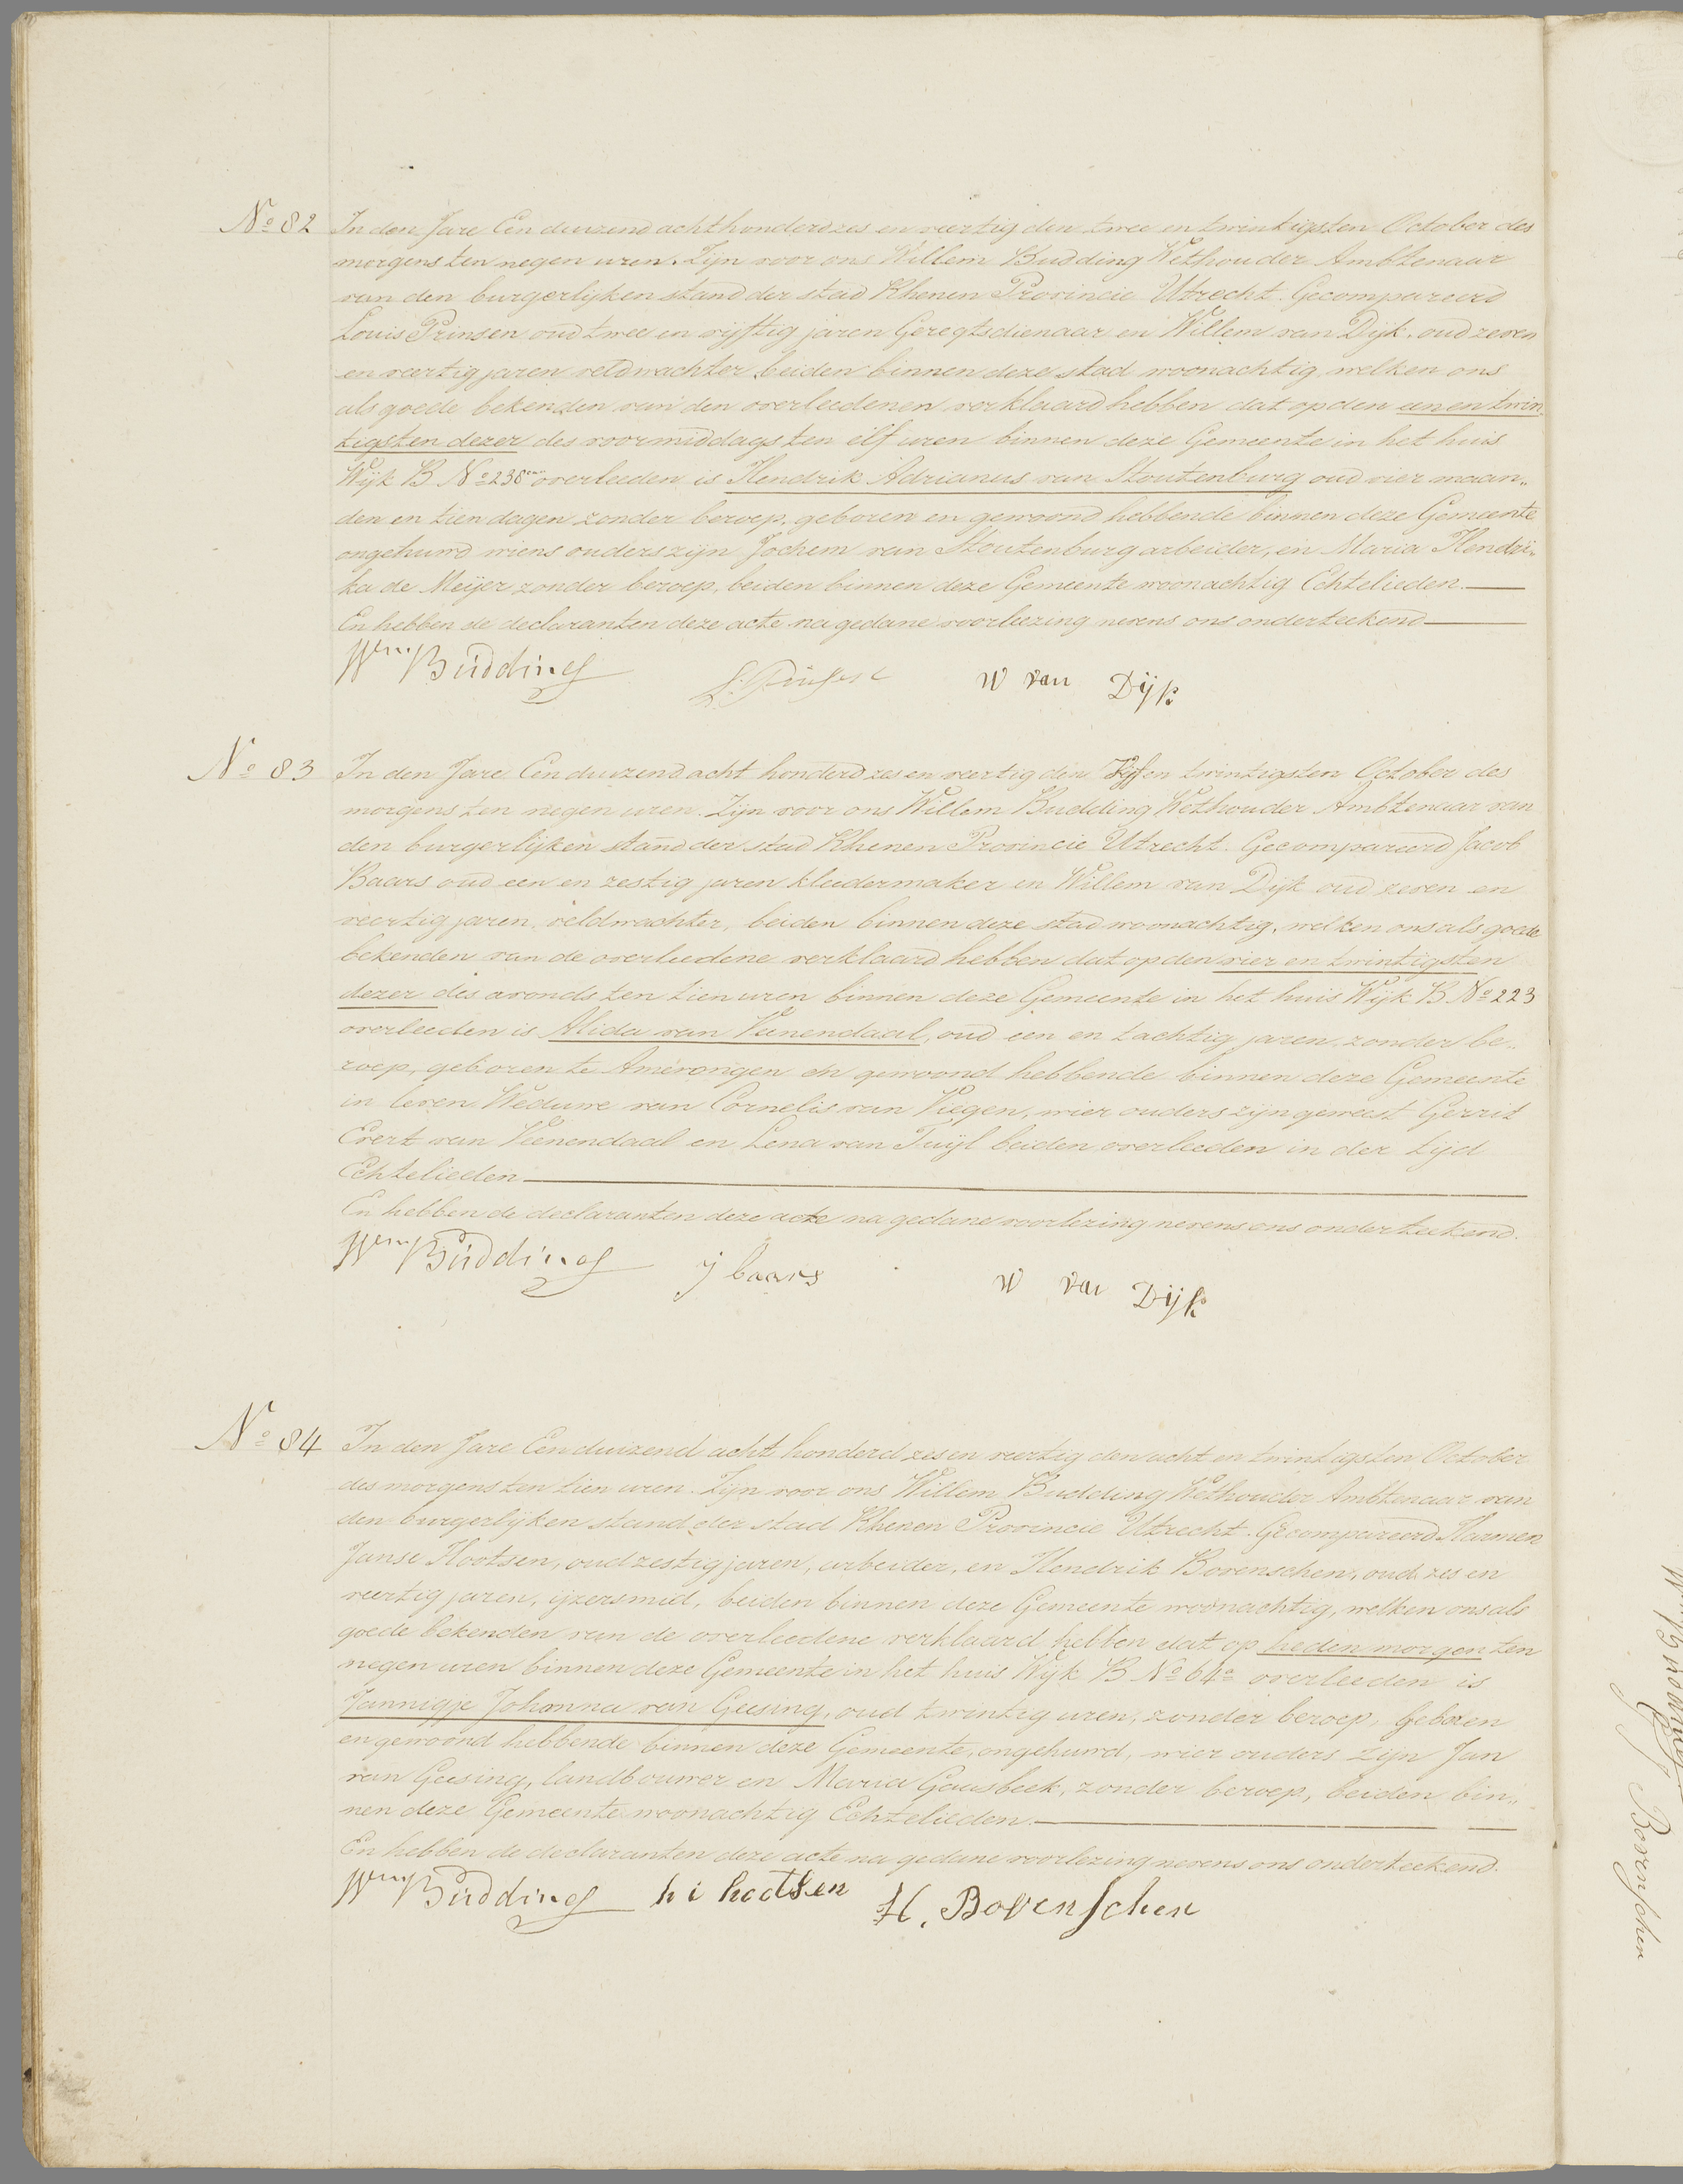 No 82
In den Jare Een duizend achthonderd zes en veertig den twee en twintigsten October des
morgens ten negen uren. Zijn voor ons Willem Budding Wethouder Ambtenaar
van den burgerlijken stand der stad Rhenen Provincie Utrecht. Gecompareerd
Louis Prinsen oud twee en vijftig jaren Geregtsdienaar en Willem van Dijk, oud zeven
en veertig jaren veldwachter beiden binnen deze stad woonachtig, welken ons
als goede bekenden van den overledenen verklaard hebben dat op den een en twin
tigsten dezer des voormiddags ten elf uren binnen deze Gemeente in het huis
Wijk B No 238 overleeden is Hendrik Adrianus van Stoutenburg oud vier maan„
den en tien dagen zonder beroep, geboren en gewoond hebbende binnen deze Gemeente
ongehuwd wiens ouders zijn Jochem van Stoutenburg arbeider, en Maria Hendri„
ka de Meijer zonder beroep, beiden binnen deze Gemeente woonachtig Echtelieden.
En hebben de declaranten deze acte na gedane voorleezing nevens ons onderteekend
Wem Budding L. Prinsen W van Dijk
No 83
In den Jare Een duizend acht honderd zes en veertig den Vijf en twintigsten October des
morgens ten negen uren. Zijn voor ons Willem Budding Wethouder Ambtenaar van
den burgerlijken stand der stad Rhenen Provincie Utrecht. Gecompareerd Jacob
Baars oud een en zestig jaren kleedermaker en Willem van Dijk oud zeven en
veertig jaren, veldwachter, beiden binnen deze stad woonachtig, welken ons als goede
bekenden van de overleedene verklaard hebben dat op den vier en twintigsten
dezer des avonds ten tien uren binnen deze Gemeente in het huis Wijk B No 223
overleeden is Alida van Veenendaal, oud een en tachtig jaren, zonder be„
roep, geboren te Amerongen en gewoond hebbende binnen deze Gemeente
in leven Weduwe van Cornelis van Viegen, wier ouders zijn geweest Gerrit
Evert van Veenendaal en Lena van Tuijl beiden overleeden in der tijd
Echtelieden
En hebben de declaranten deze acte na gedane voorlezing nevens ons onderteekend.
Wem Budding j baars W van Dijk
No 84
In den Jare Een duizend acht honderd zes en veertig den acht en twintigsten October
des morgens ten tien uren. Zijn voor ons Willem Budding Wethouder Ambtenaar van
den burgerlijken stand der stad Rhenen Provincie Utrecht. Gecompareerd Harmen
Janse Hootsen, oud zestig jaren, arbeider, en Hendrik Bovenschen, oud zes en
veertig jaren, ijzersmid, beiden binnen deze Gemeente woonachtig, welken ons als
goede bekenden van de overleedene verklaard hebben dat op heden morgen ten
negen uren binnen deze Gemeente in het huis Wijk B No 64a overleeden is
Jannigje Johanna van Geesing, oud twintig uren, zonder beroep, geboren
en gewoond hebbende binnen deze Gemeente, ongehuwd, wier ouders zijn Jan
van Geesing, landbouwer en Maria Gaasbeek, zonder beroep, beiden bin„
nen deze Gemeente woonachtig Echtelieden.
En hebben de declaranten deze acte na gedane voorlezing nevens ons onderteekend.
Wem Budding h i hootsen H. Bovenschen
Wem Budding
Bovenschen